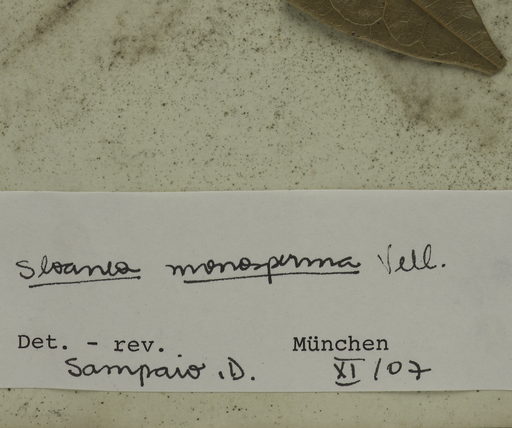 Sloanea monosperma Vell.
Det. - rev. München
Sampaio, D. XI/07